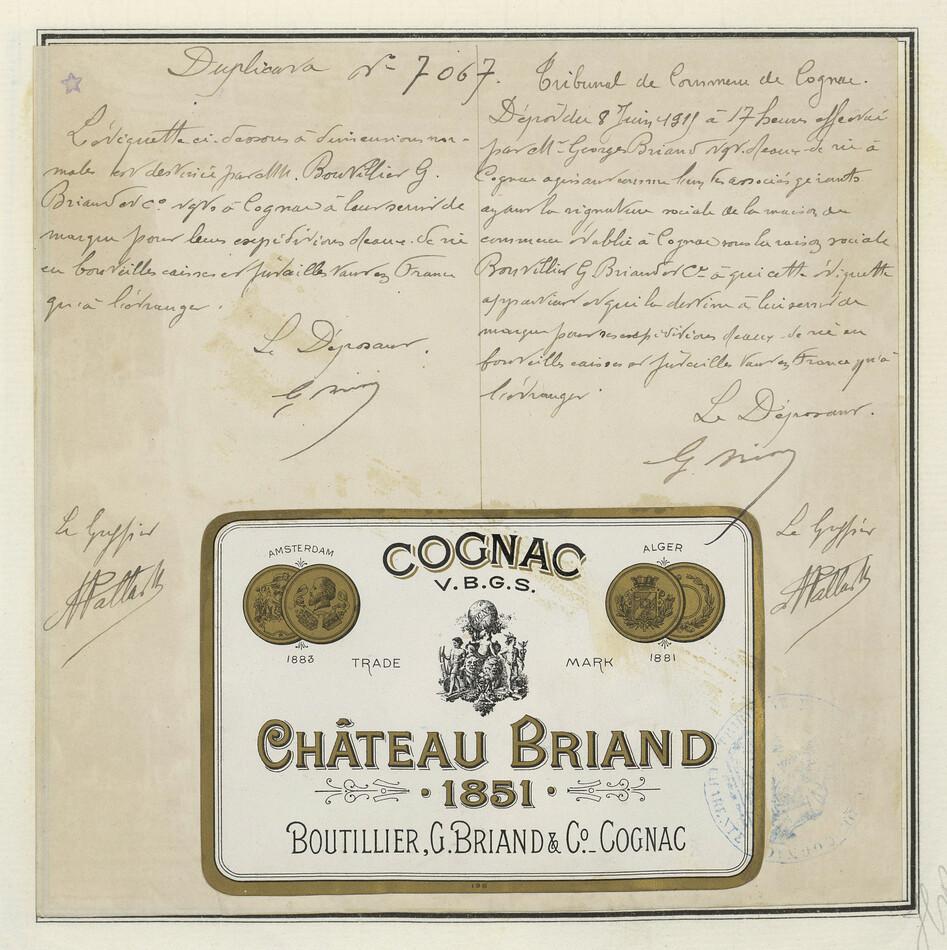 Duplicata N° 7067.
La vignette ci-dessous à dimensions nor-
males est destinée par MM. Boutillier G.
Briand et Co. Ngts à Cognac à leur servir de
marque pour leurs expéditions d'eaux-de-vie
en bouteilles caisses et futailles tant en France
qu'à l'étranger.
Le Déposant.
Tribunal de Commerce de Cognac.
Dépôt du 8 Juin 1911 à 17 heures effectué
par Mr Georges Briand Ngt. d'eaux-de-vie à
Cognac agissant comme l'un des associés gérants
ayant la signature sociale de la maison de
commerce établie à Cognac sous la raison sociale
Boutillier G. Briand et Co. à qui cette vignette
appartient et qui la destine à lui servir de
marque pour ses expéditions d'eaux-de-vie en
bouteilles caisses et futailles tant en France qu'à
l'étranger
Le Déposant.
Le Greffier
Le Greffier
COGNAC
V.B.G.S.
AMSTERDAM
1883
ALGER
1881
TRADE MARK
CHÂTEAU BRIAND
· 1851 ·
BOUTILLIER, G. BRIAND & Co_ COGNAC
196